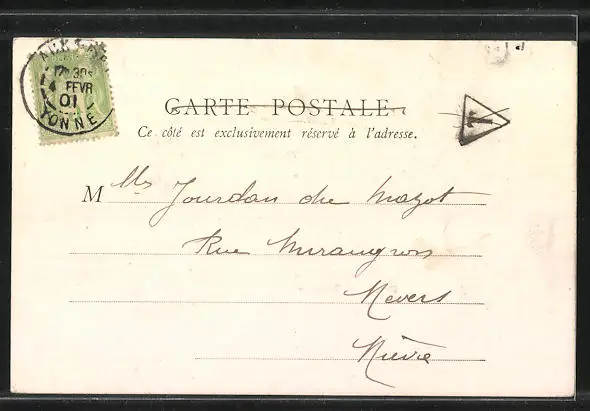 12 30S
4 FEVR
01
YONNE
CARTE POSTALE
Ce côté est exclusivement réservé à l'adresse.
T
M lle Jourdan du Mazot
Rue
Nevers
Nièvre